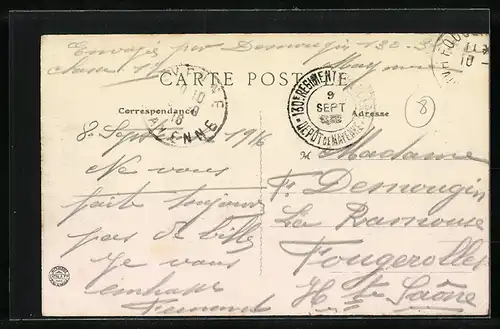 Envoyé par Demougin 132
CARTE POSTALE
Correspondance
Adresse
130e REGIMENT
9
SEPT
DEPOT DE MAYENNE
8
8 Sept 1916
Ne vous
faite toujours
pas de bille
Je vous
embrasse
Fernand
Madame
F. Demougin
La Ramouse
Fougerolles
Hte Saône